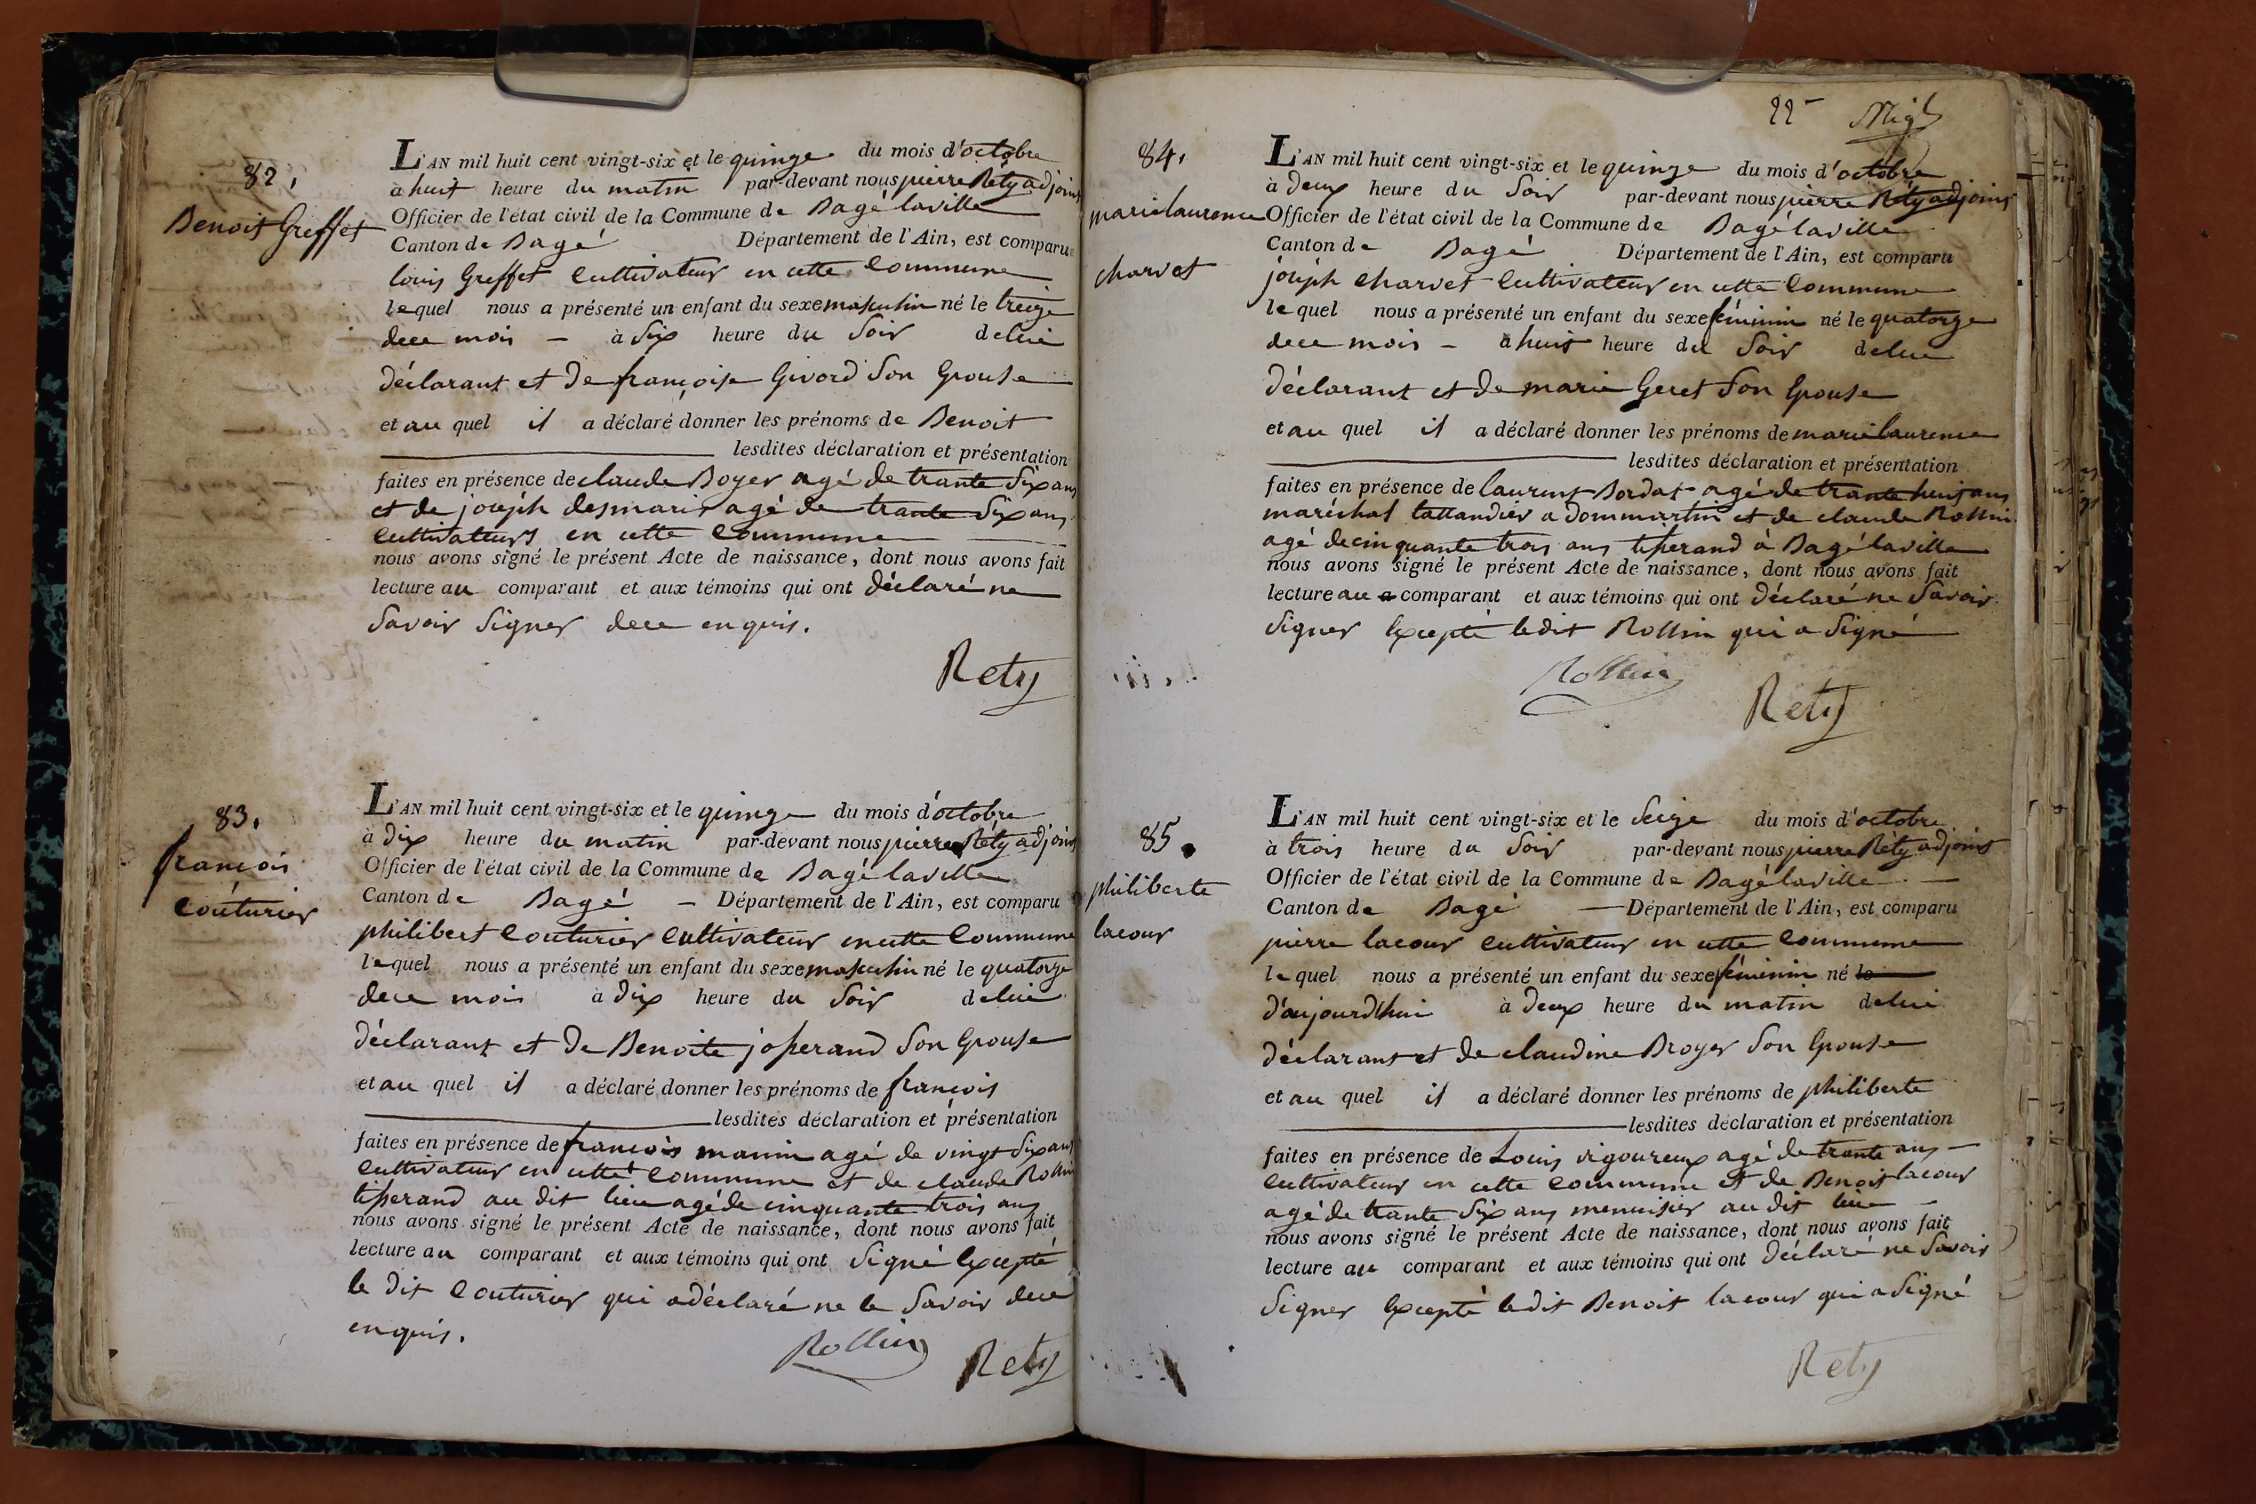 82.
Benoit Greffet
L'AN mil huit cent vingt-six et le quinze du mois d'octobre
à huit heure du matin par-devant nous pierre Réty adjoint
Officier de l'état civil de la Commune de Bagé laville
Canton de Bagé Département de l'Ain, est comparu
louis Greffet cultivateur en cette commune
lequel nous a présenté un enfant du sexe masculin né le treize
dece mois – à six heure du soir delui
déclarant et de françoise Givord son Epouse
et au quel il a déclaré donner les prénoms de Benoit
lesdites déclaration et présentation
faites en présence de claude Boyer agé de trante six ans
et de joseph desmaris agé de trante six ans
cultivateurs en cette commune
nous avons signé le présent Acte de naissance, dont nous avons fait
lecture au comparant et aux témoins qui ont déclaré ne
savoir signer dece enquis.
Rety
83.
françois
couturier
L'AN mil huit cent vingt-six et le quinze du mois d'octobre
à dix heure du matin par-devant nous pierre Réty adjoint
Officier de l'état civil de la Commune de Bagé laville
Canton de Bagé – Département de l'Ain, est comparu
philibert couturier cultivateur en cette commune
lequel nous a présenté un enfant du sexe masculin né le quatorze
dece mois à dix heure du soir delui
déclarant et de Benoite josserand son Epouse
et au quel il a déclaré donner les prénoms de françois
lesdites déclaration et présentation
faites en présence de françois manin agé de vingt six ans
cultivateur en cette commune et de claude Rollin
tisserand au dit lieu agé de cinquante trois ans
nous avons signé le présent Acte de naissance, dont nous avons fait
lecture au comparant et aux témoins qui ont signé Excepté
le dit couturier qui a déclaré ne le savoir dece
enquis.
Rollin Rety
22
84.
marie laurence
charvet
L'AN mil huit cent vingt-six et le quinze du mois d'octobre
à deux heure du soir par-devant nous pierre Réty adjoint
Officier de l'état civil de la Commune de Bagé laville
Canton de Bagé Département de l'Ain, est comparu
joseph charvet cultivateur en cette commune
lequel nous a présenté un enfant du sexe féminin né le quatorze
dece mois – à huit heure du soir delui
déclarant et de marie Geret son Epouse
et au quel il a déclaré donner les prénoms de marie laurence
lesdites déclaration et présentation
faites en présence de laurent Bordat agé de trante huit ans
maréchal tattandier a dommartin et de claude Rollin
agé decinquante trois ans tisserand à Bagé laville
nous avons signé le présent Acte de naissance, dont nous avons fait
lecture au comparant et aux témoins qui ont déclaré ne savoir
signer Excepté ledit Rollin qui a signé
Rollin
Rety
85.
philiberte
lacour
L'AN mil huit cent vingt-six et le seize du mois d'octobre
à trois heure du soir par-devant nous pierre Réty adjoint
Officier de l'état civil de la Commune de Bagé laville
Canton de Bagé – Département de l'Ain, est comparu
pierre lacour cultivateur en cette commune
lequel nous a présenté un enfant du sexe féminin né le
d'aujourd'hui à deux heure du matin delui
déclarant et de claudine Broyer son Epouse
et au quel il a déclaré donner les prénoms de philiberte
lesdites déclaration et présentation
faites en présence de Louis vigoureux agé de trante ans
cultivateur en cette commune et de Benoit lacour
agé de trante six ans menuisier au dit lieu
nous avons signé le présent Acte de naissance, dont nous avons fait
lecture au comparant et aux témoins qui ont déclaré ne savoir
signer Excepté ledit Benoit lacour qui a signé
Rety